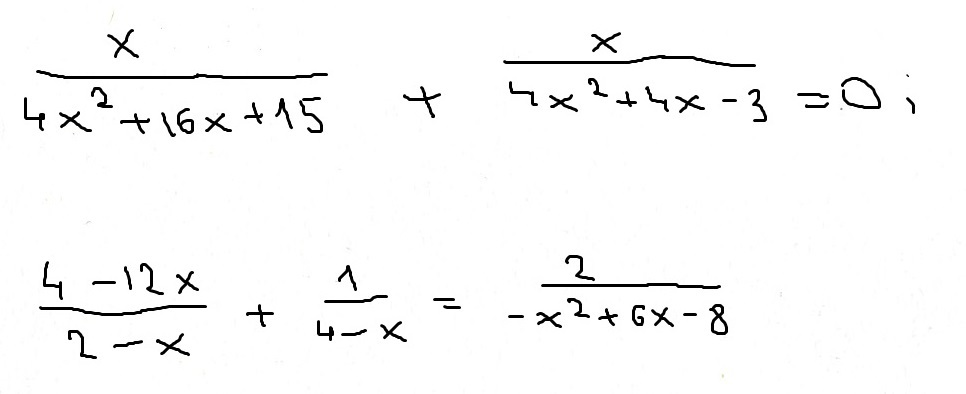 x/(4x²+16x+15) + x/(4x²+4x-3) = 0;
(4-12x)/(2-x) + 1/(4-x) = 2/(-x²+6x-8)